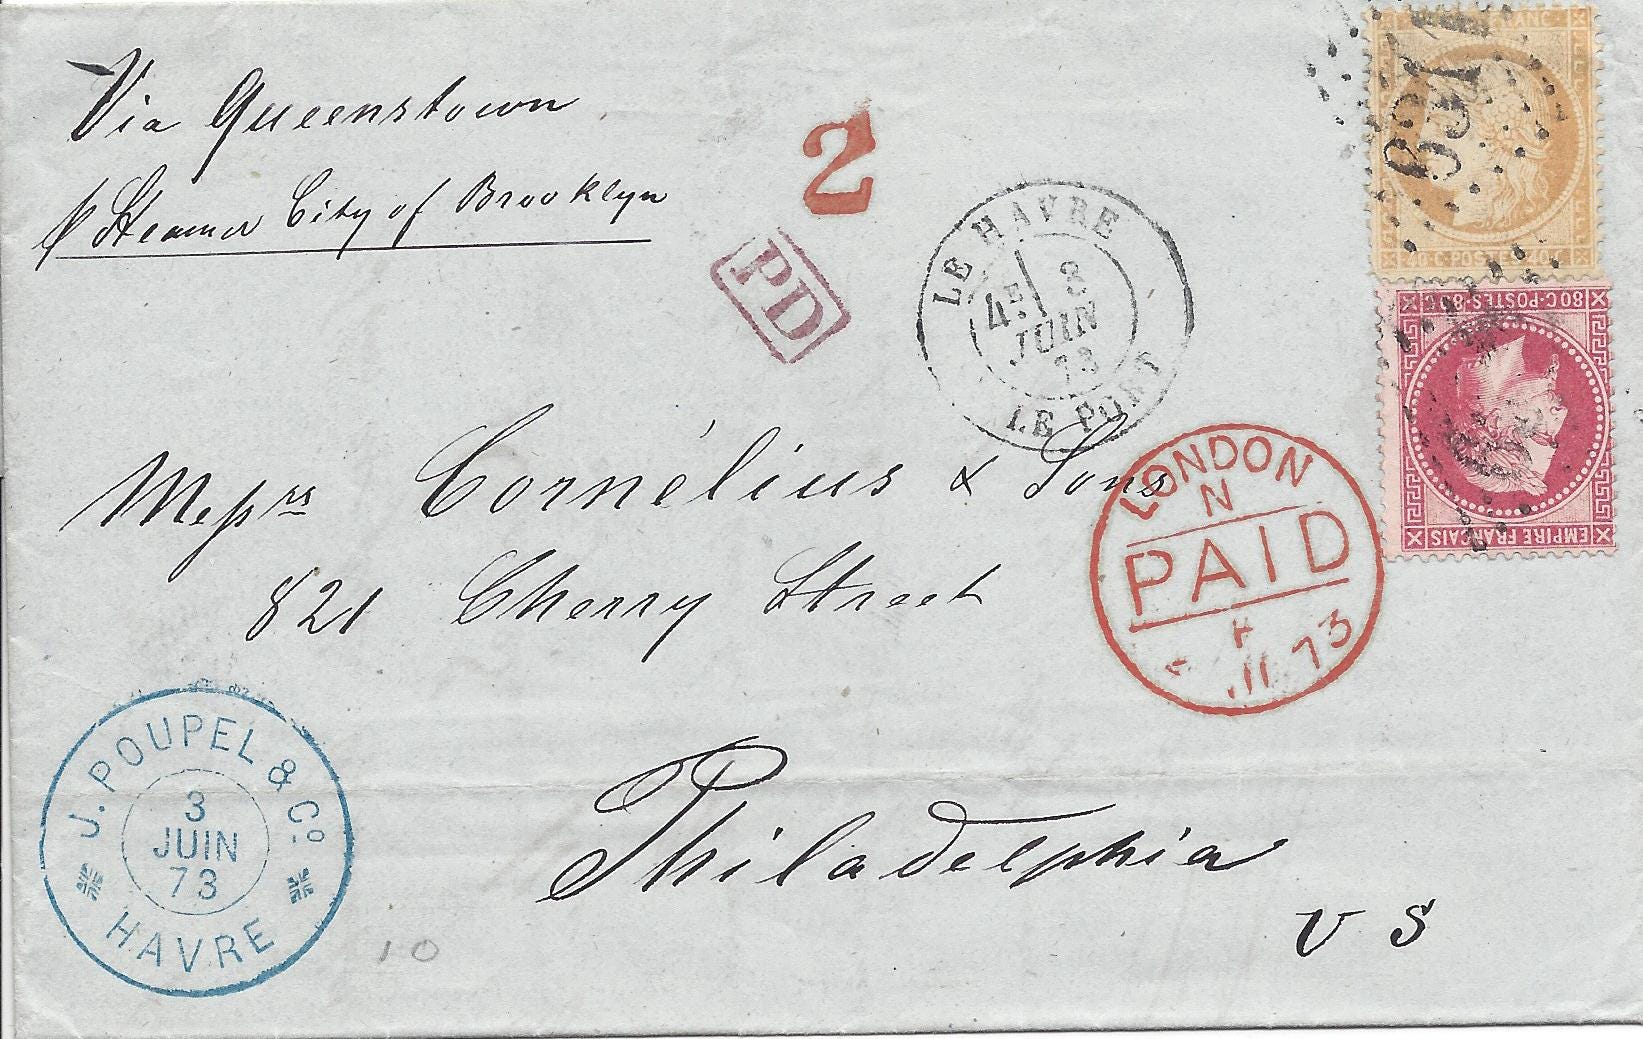 Via Queenstown
p Steamer City of Brooklyn
2
PD
LE HAVRE
4E 3
JUIN
73
LE PORT
40 C·POSTES·40 C
80 C·POSTES·80 C
EMPIRE FRANÇAIS
Messrs Cornélius & Sons
821 Cherry Street
LONDON
N
PAID
JU 73
Philadelphia
U S
J. POUPEL & Co.
3
JUIN
73
HAVRE
10